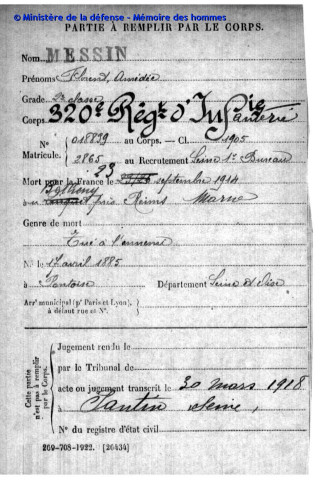 © Ministère de la défense - Mémoire des hommes
PARTIE À REMPLIR PAR LE CORPS.
Nom MESSIN
Prénoms Florent, Amédée
Grade 2e classe
Corps 320e Régt d'Infanterie
N° 018839 au Corps. — Cl. 1905
Matricule. 2865 au Recrutement Seine 1er Bureau
Mort pour la France le 23 septembre 1914
à près Reims Marne
Genre de mort
Tué à l'ennemi
Né le 17 avril 1885
à Pontoise Département Seine et Oise
Arr' municipal (p' Paris et Lyon),
à défaut rue et N°.
Cette partie
n'est pas à remplir
par le Corps.
Jugement rendu le
par le Tribunal de
acte ou jugement transcrit le 30 mars 1918
à Pantin Seine,
N° du registre d'état civil
269-708-1922. [26434]